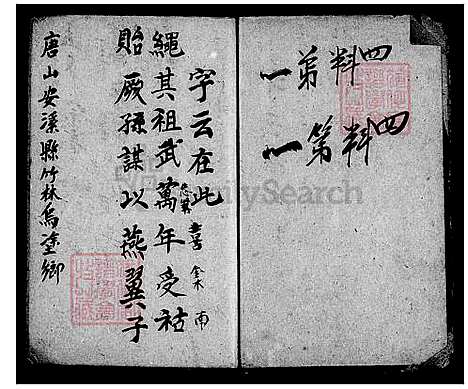 四料第一
四料第一
字云在此
喜 南
繩其祖武萬年受祜
貽厥孫謀以燕翼子
唐山安溪縣竹林烏塗鄉
FamilySearch